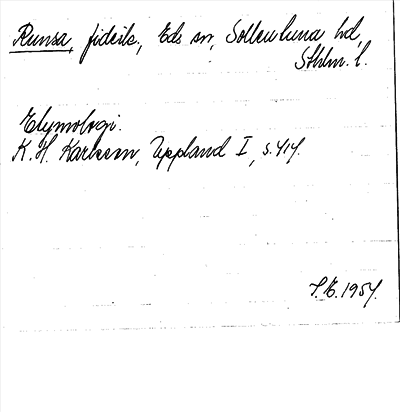 Runsa, fideik., Eds sn, Sollentuna hd,
Sthlm. l.
Etymologi.
K. H. Karlsson, Uppland I, s. 414.
1957.